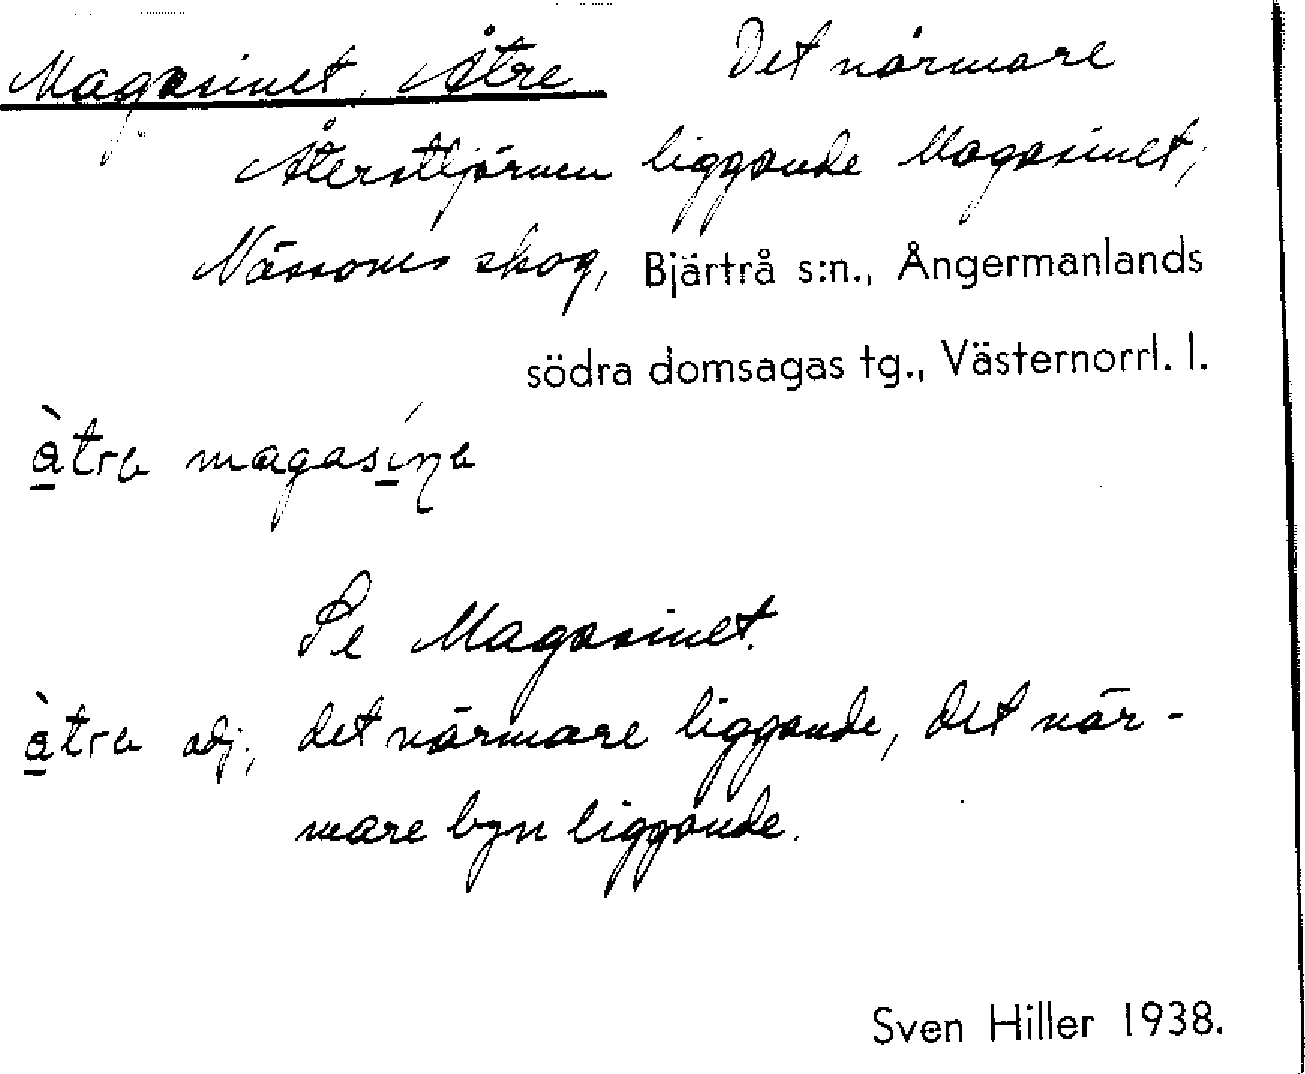 Magasinet, Åtre Det närmare
Återsttjärnen liggande Magasinet,
Nässoms skog, Bjärtrå s:n., Ångermanlands
södra domsagas tg., Västernorrl. l.
àtra magasína
Se Magasinet.
àtra adj., det närmare liggande, det när-
mare byn liggande.
Sven Hiller 1938.